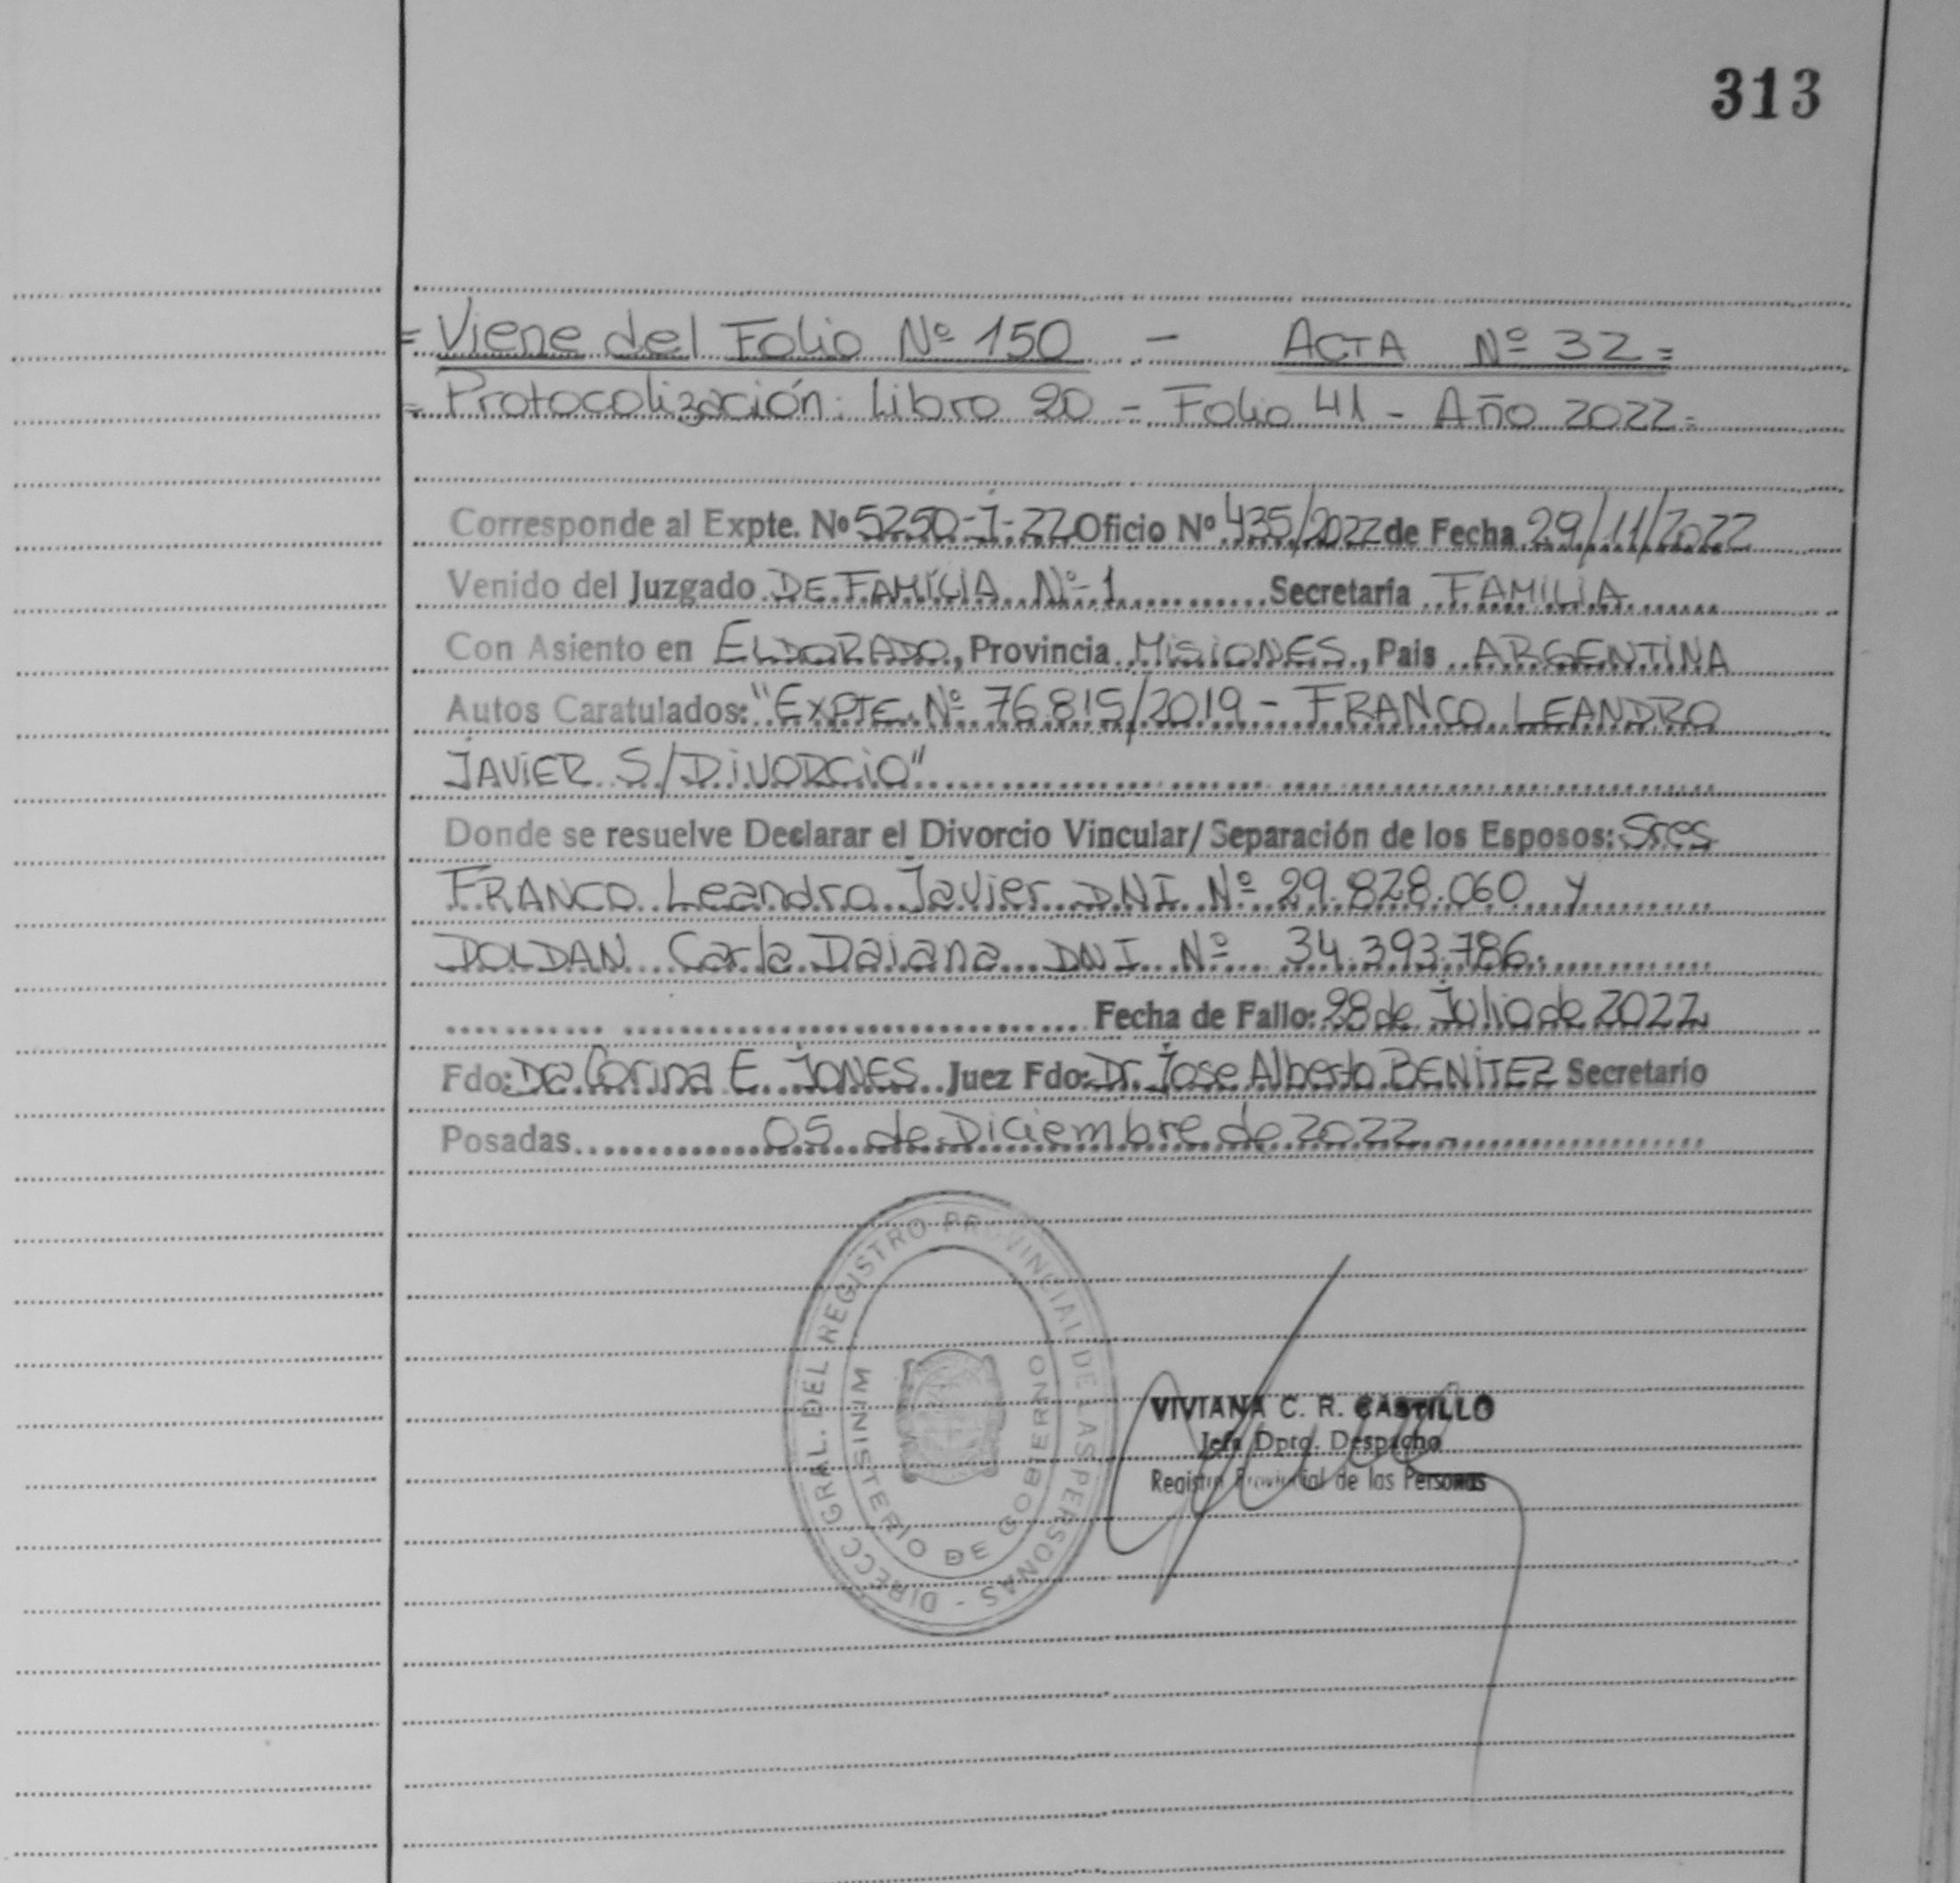 313
= Viene del Folio Nº 150 - ACTA Nº 32 =
= Protocolización: Libro 20 - Folio 41 - Año 2022 =
Corresponde al Expte. Nº 5250-I-22 Oficio Nº 435/2022 de Fecha 29/11/2022
Venido del Juzgado DE FAMILIA Nº 1 Secretaría FAMILIA
Con Asiento en ELDORADO, Provincia MISIONES, Pais ARGENTINA
Autos Caratulados: "EXPTE. Nº 76815/2019 - FRANCO LEANDRO
JAVIER S/DIVORCIO"
Donde se resuelve Declarar el Divorcio Vincular/Separación de los Esposos: Sres
FRANCO Leandro Javier DNI Nº 29.828.060 y
DOLDAN Carla Daiana DNI Nº 34.393.786.
Fecha de Fallo: 28 de Julio de 2022
Fdo: Dra Corina E. JONES Juez Fdo: Dr. Jose Alberto BENITEZ Secretario
Posadas 05 de Diciembre de 2022.
DIRECC. GRAL. DEL REGISTRO PROVINCIAL DE LAS PERSONAS -
MINISTERIO DE GOBIERNO
VIVIANA C. R. CASTILLO
Jefa Dpto. Despacho
Registro Provincial de las Personas